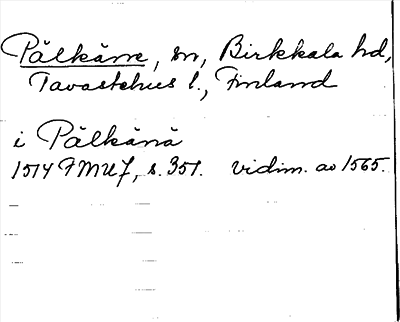 Pälkäne, sn, Birkkala hd,
Tavastehus l., Finland
i Pälkänä
1514 FMU 7, s. 351. vidim. av 1565.